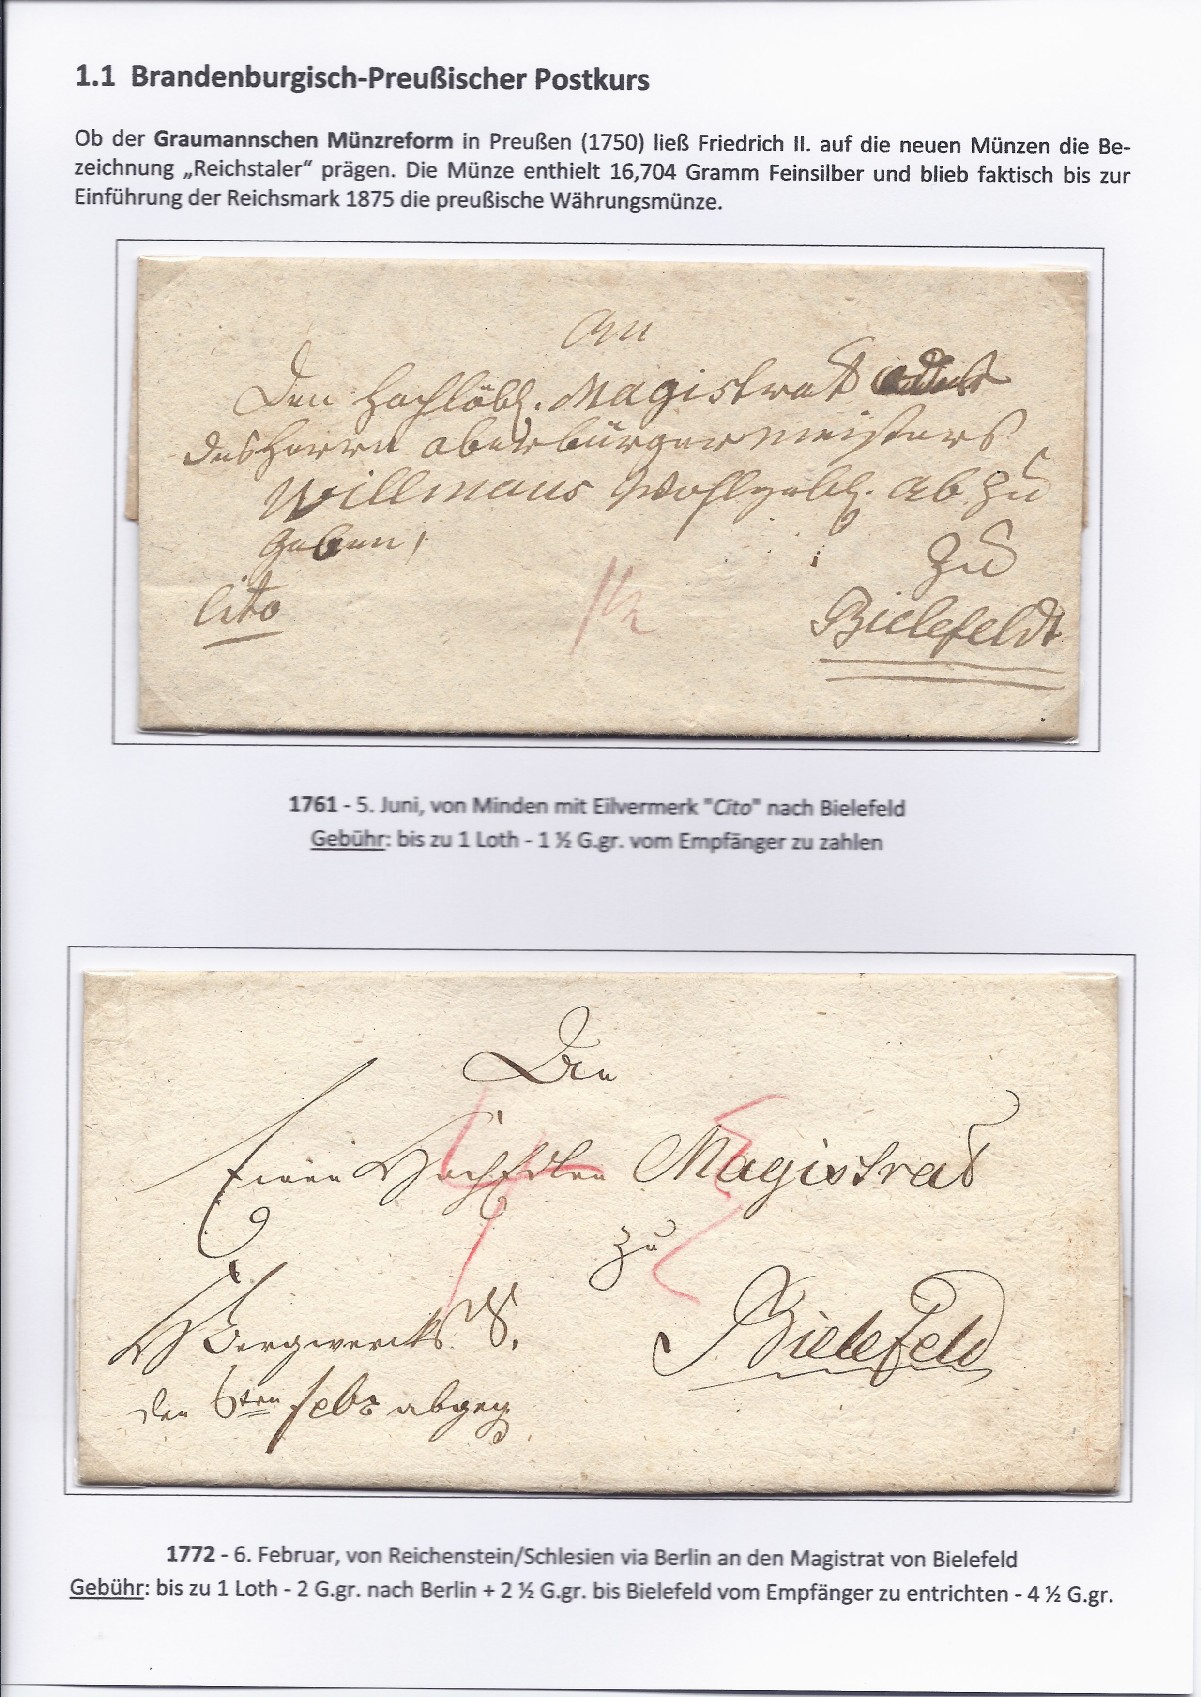 1.1 Brandenburgisch-Preußischer Postkurs
Ob der Graumannschen Münzreform in Preußen (1750) ließ Friedrich II. auf die neuen Münzen die Be-
zeichnung „Reichstaler“ prägen. Die Münze enthielt 16,704 Gramm Feinsilber und blieb faktisch bis zur
Einführung der Reichsmark 1875 die preußische Währungsmünze.
An
Den Hochlöbl. Magistrat
des Herrn Oberbürgermeisters
Willmans Wohlgebl. ab zu
geben,
Cito
1½
zu
Bielefeldt
1761 - 5. Juni, von Minden mit Eilvermerk "Cito" nach Bielefeld
Gebühr: bis zu 1 Loth - 1 ½ G.gr. vom Empfänger zu zahlen
Einen HochEdlen Magistrat
zu
Bielefeld
Bergwercks S.
den 6ten febr abgeg
1772 - 6. Februar, von Reichenstein/Schlesien via Berlin an den Magistrat von Bielefeld
Gebühr: bis zu 1 Loth - 2 G.gr. nach Berlin + 2 ½ G.gr. bis Bielefeld vom Empfänger zu entrichten - 4 ½ G.gr.